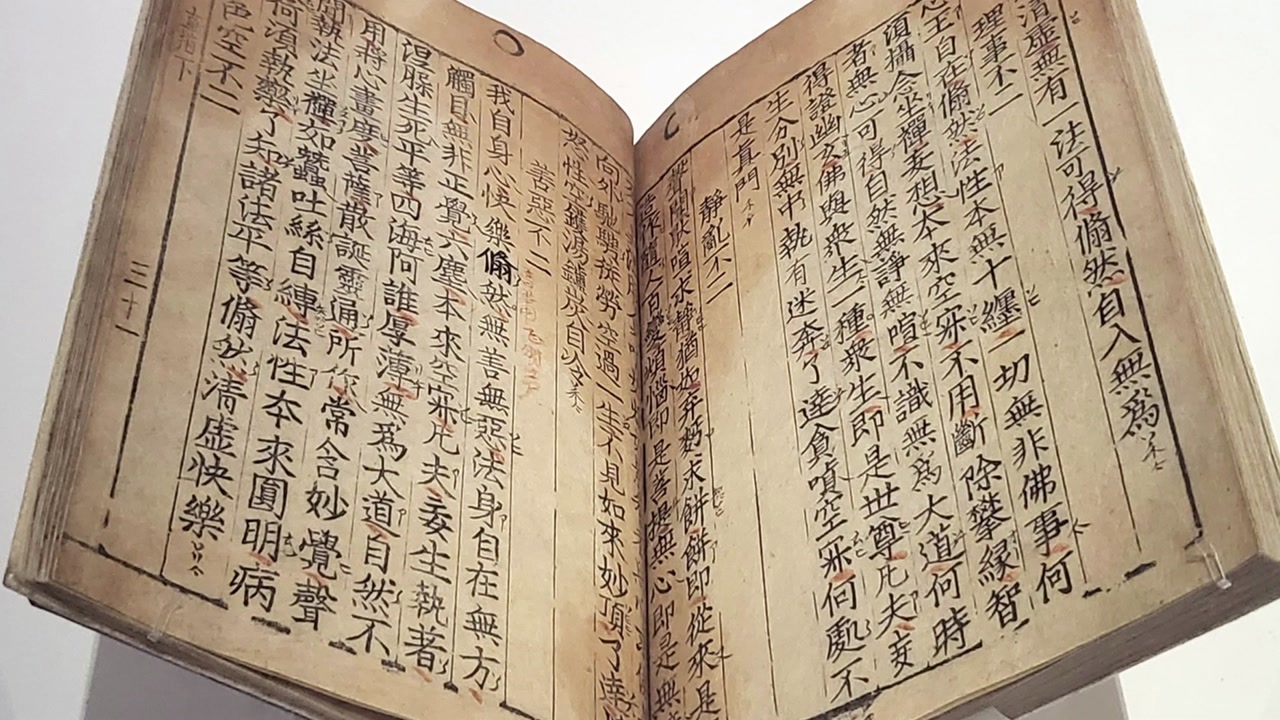 清虛無有一法可得翛然自入無爲
理事不二
心王自在翛然法性本無十纏一切無非佛事何
須攝念坐禪妄想本來空寂不用斷除攀緣智
者無心可得自然無諍無喧不識無爲大道何時
得證幽玄佛與衆生一種衆生即是世尊凡夫妄
生分別無中執有迷奔了達貪嗔空寂何處不
是真門
靜亂不二
聲聞厭喧求靜猶如弃麪求餅餅即從來是
隨人百變煩惱即是菩提無心即是無
向外馳騁疲勞空過一生不見如來妙頂了達
性空鑊湯鑪炭自冷
善惡不二
我自身心快樂翛然無善無惡法身自在無方
觸目無非正覺六塵本來空寂凡夫妄生執者
涅槃生死平等四海阿誰厚薄無爲大道自然不
用將心畫度菩薩散誕靈通所作常含妙覺聲
聞執法坐禪如蠶吐絲自縛法性本來圓明病
何須執藥了知諸法平等翛然清虛快樂
色空不二
直指下 三十一